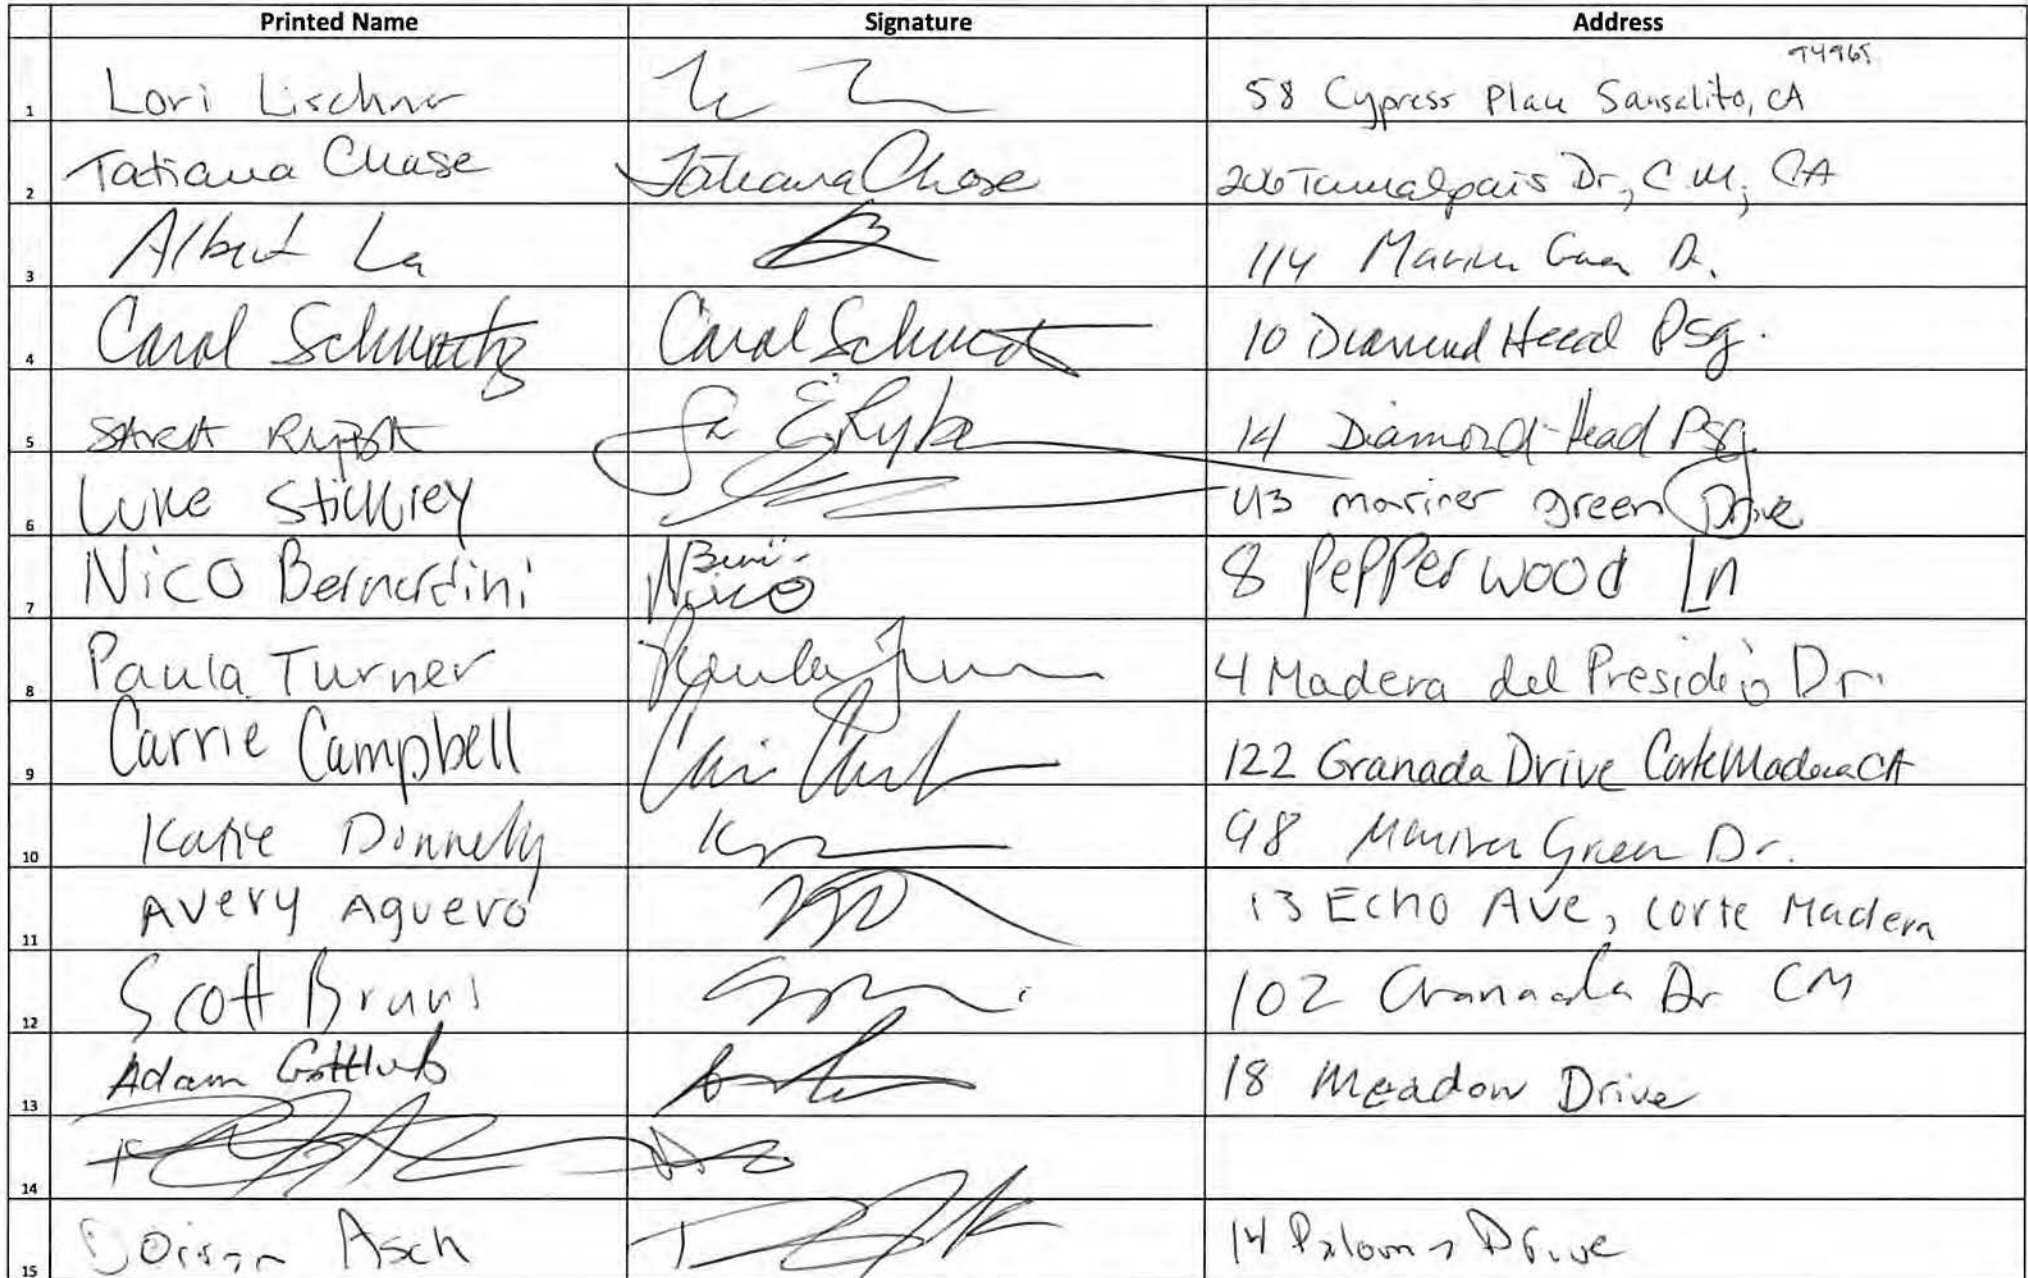 Printed Name Signature Address
94965
1 Lori Lischner 58 Cypress Place Sausalito, CA
2 Tatiana Chase Tatiana Chase Tamalpais Dr, C.M, CA
3 Albert La 114 Mariner Green Dr.
4 Carol Schwartz Carol Schwartz 10 Diamond Head Psg.
5 14 Diamond Head Psg
6 Luke Stickney 43 mariner green Drive
7 Nico Bernardini Nico 8 Pepperwood Ln
8 Paula Turner Paula Turner 4 Madera del Presidio Dr.
9 Carrie Campbell 122 Granada Drive Corte Madera CA
10 Katie Donnelly 98 Mariner Green Dr.
11 Avery Aguero 13 Echo Ave, Corte Madera
12 Scott 102 Granada Dr CM
13 Adam Gottlieb 18 Meadow Drive
14
15 Asch 14 Paloma Drive